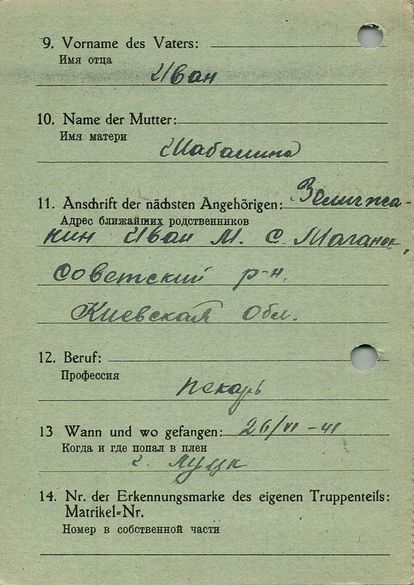 9. Vorname des Vaters:
Имя отца
Иван
10. Name der Mutter:
Имя матери
Шабалина
11. Anschrift der nächsten Angehörigen: Зеличжа-
Адрес ближайших родственников
кин Иван М. С.
Советский р-н.
Киевская Обл.
12. Beruf:
Профессия
пекарь
13 Wann und wo gefangen: 26/VI-41
Когда и где попал в плен
г. Луцк
14. Nr. der Erkennungsmarke des eigenen Truppenteils:
Matrikel=Nr.
Номер в собственной части